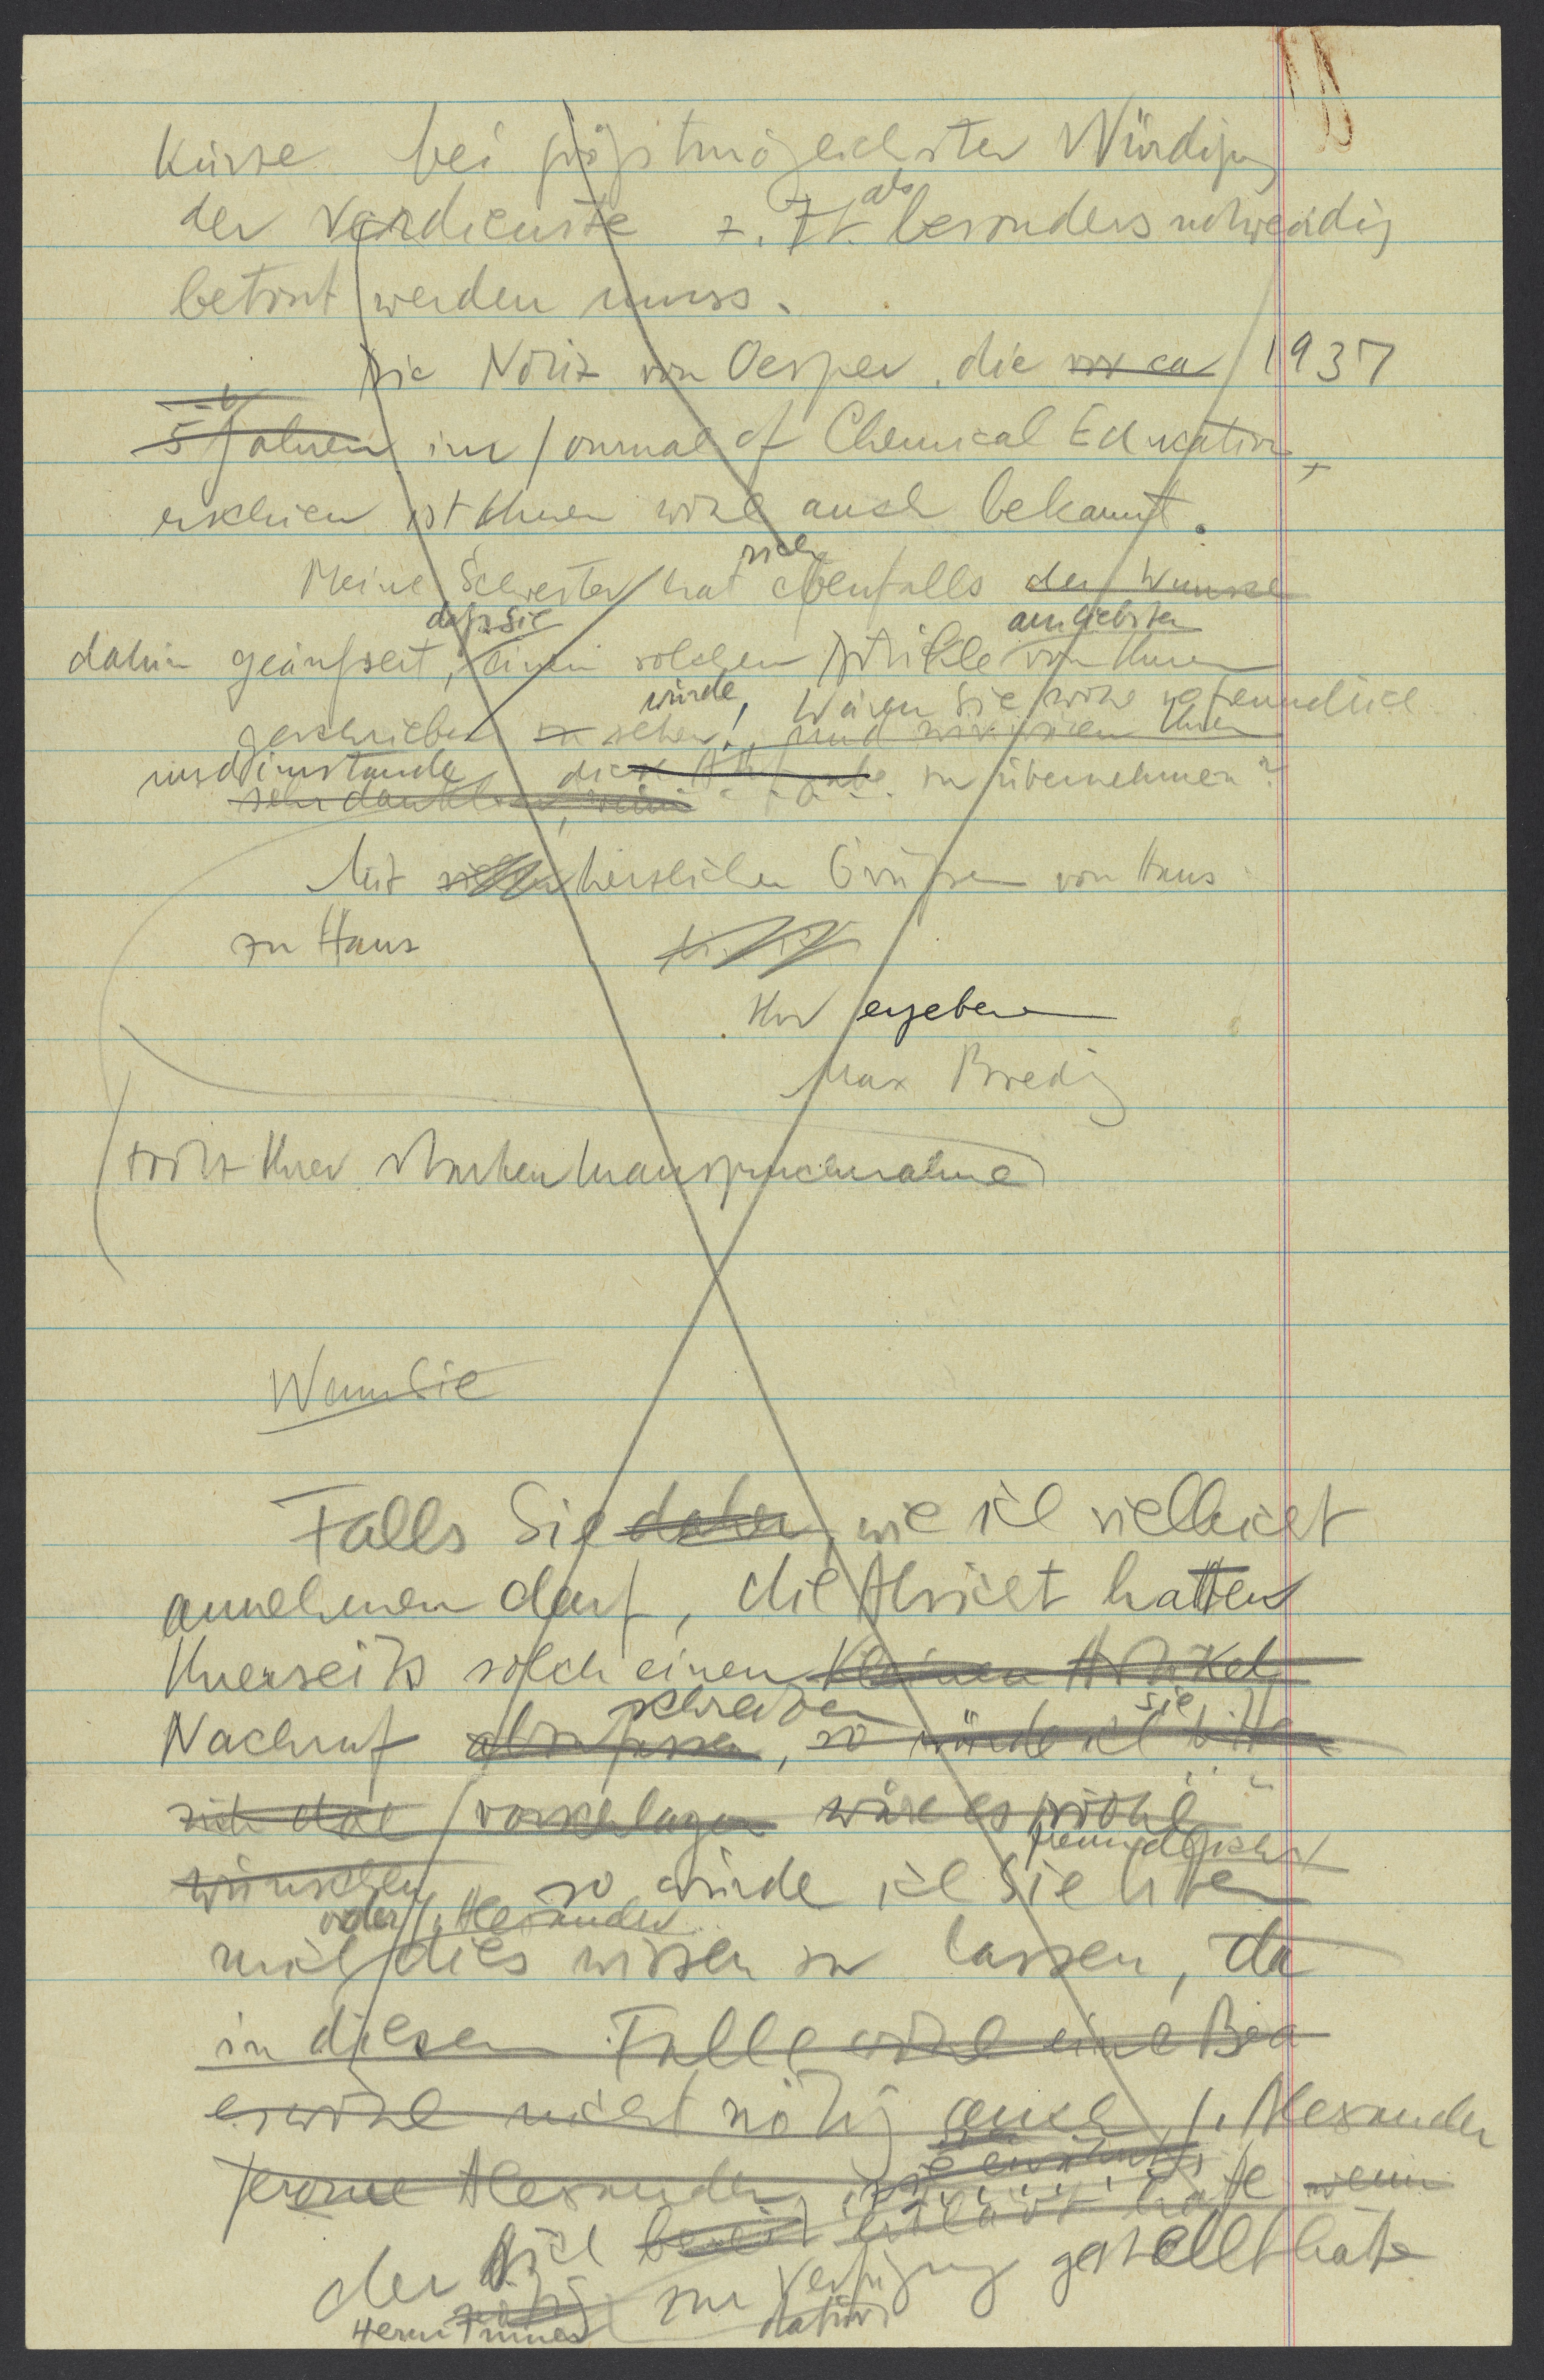 Kürze bei größtmöglichster Würdigung
der Verdienste z. Zt. als besonders notwendig
betont werden muss.
Die Notiz von Oesper, die vor ca 1937
5 Jahren im Journal of Chemical Education,
erschien ist Ihnen wohl auch bekannt.
Meine Schwester hat sich ebenfalls den Wunsch
dass Sie am liebsten
dahin geäußert, einen solchen Artikel von Ihnen
würde, Wären Sie wohl so freundlich
geschrieben zu sehen! und wir wären Ihnen
und imstande diese Aufgabe zu übernehmen?
sehr dankbar, wenn
Mit vielen herzlichen Grüßen von Haus
zu Haus
Ihr ergebener
Max Bredig
trotz Ihrer starken Inanspruchnahme
Wenn Sie
Falls Sie daher, wie ich vielleicht
annehmen darf, die Absicht hatten
Ihrerseits solch einen kleinen Artikel
schreiben sie
Nachruf abzufassen, so würde ich bitten
vorschlagen wäre es wohl
freundlichst
wünschen so würde ich Sie bitten
oder J. Alexander
mich dies wissen zu lassen, da
in diesem Falle wohl eine Bea
es wohl nicht nötig auch J. Alexander
sie erwähnt
Jerome Alexander, erklärt hatte wenn
der sich bereit
zur Verfügung gestellt hätte
nötig
Herrn dafür